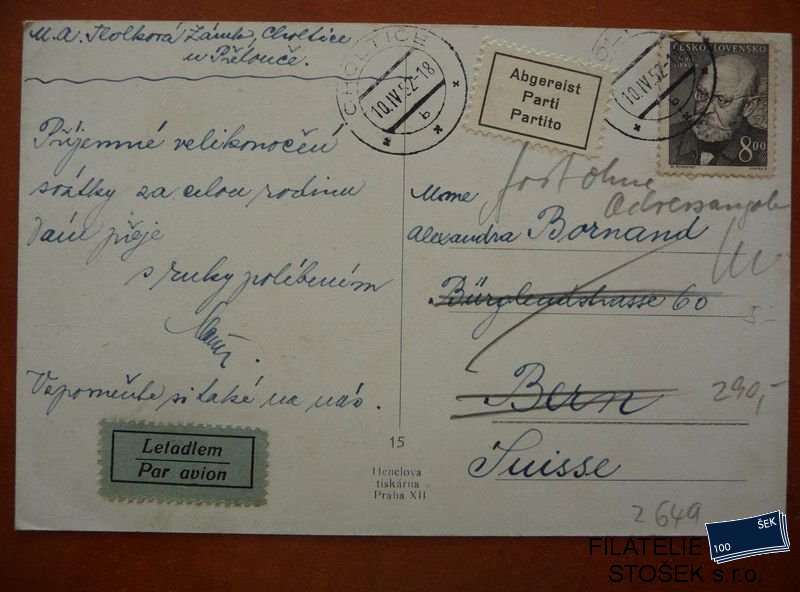 M. A. Zámek, Choltice
u Přelouče.
CHOLTICE
10.IV.52-18
b
Abgereist
Parti
Partito
10.IV.52-18
b
ČESKOSLOVENSKO
8 00
Příjemné velikonoční
svátky za celou rodinu
Vám přeje
s ruky políbením
Vzpomeňte si také na nás.
Letadlem
Par avion
15
Henclova
tiskárna
Praha XII
fort ohne
Adressangabe
Mme
Alexandra Bornand
Bürglenstrasse 60
Bern
Suisse
5-
290,-
2649
FILATELIE
STOŠEK s.r.o.
100 ŠEK